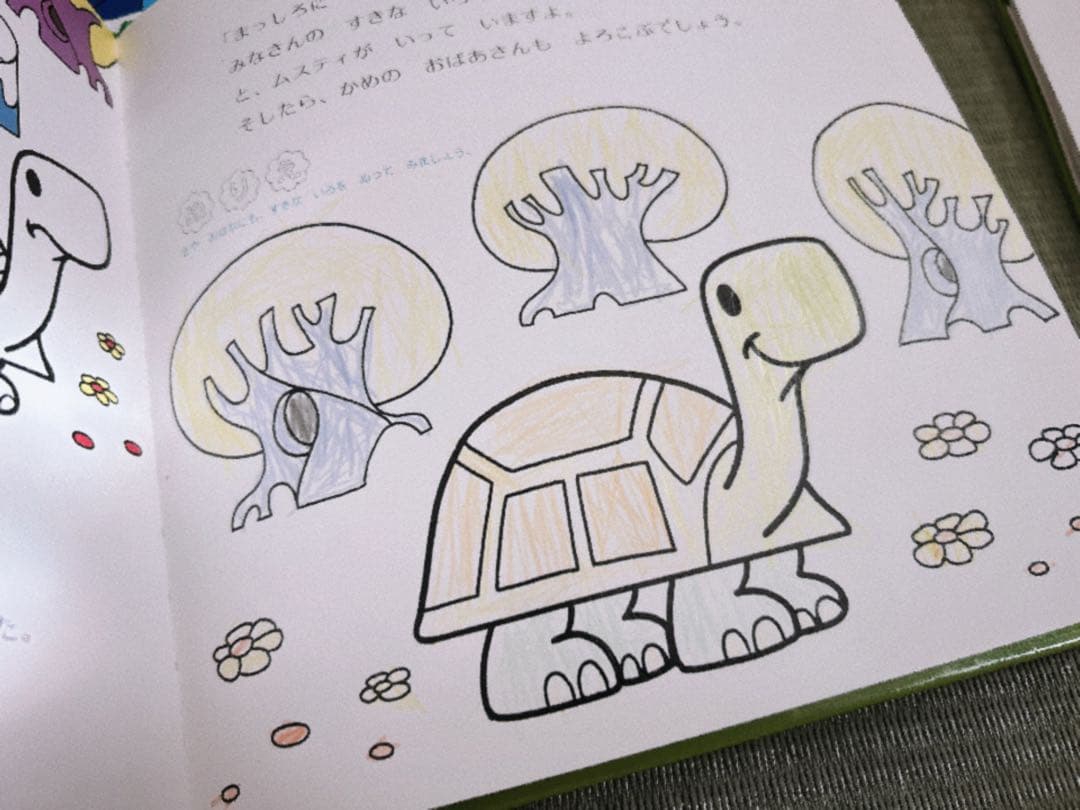 「まっしろに
みなさんの すきな いろ
と、ムスティが いって いますよ。
そしたら、かめの おばあさんも よろこぶでしょう。
ぬりえ
きや おはなにも、すきな いろを ぬって みましょう。
た。